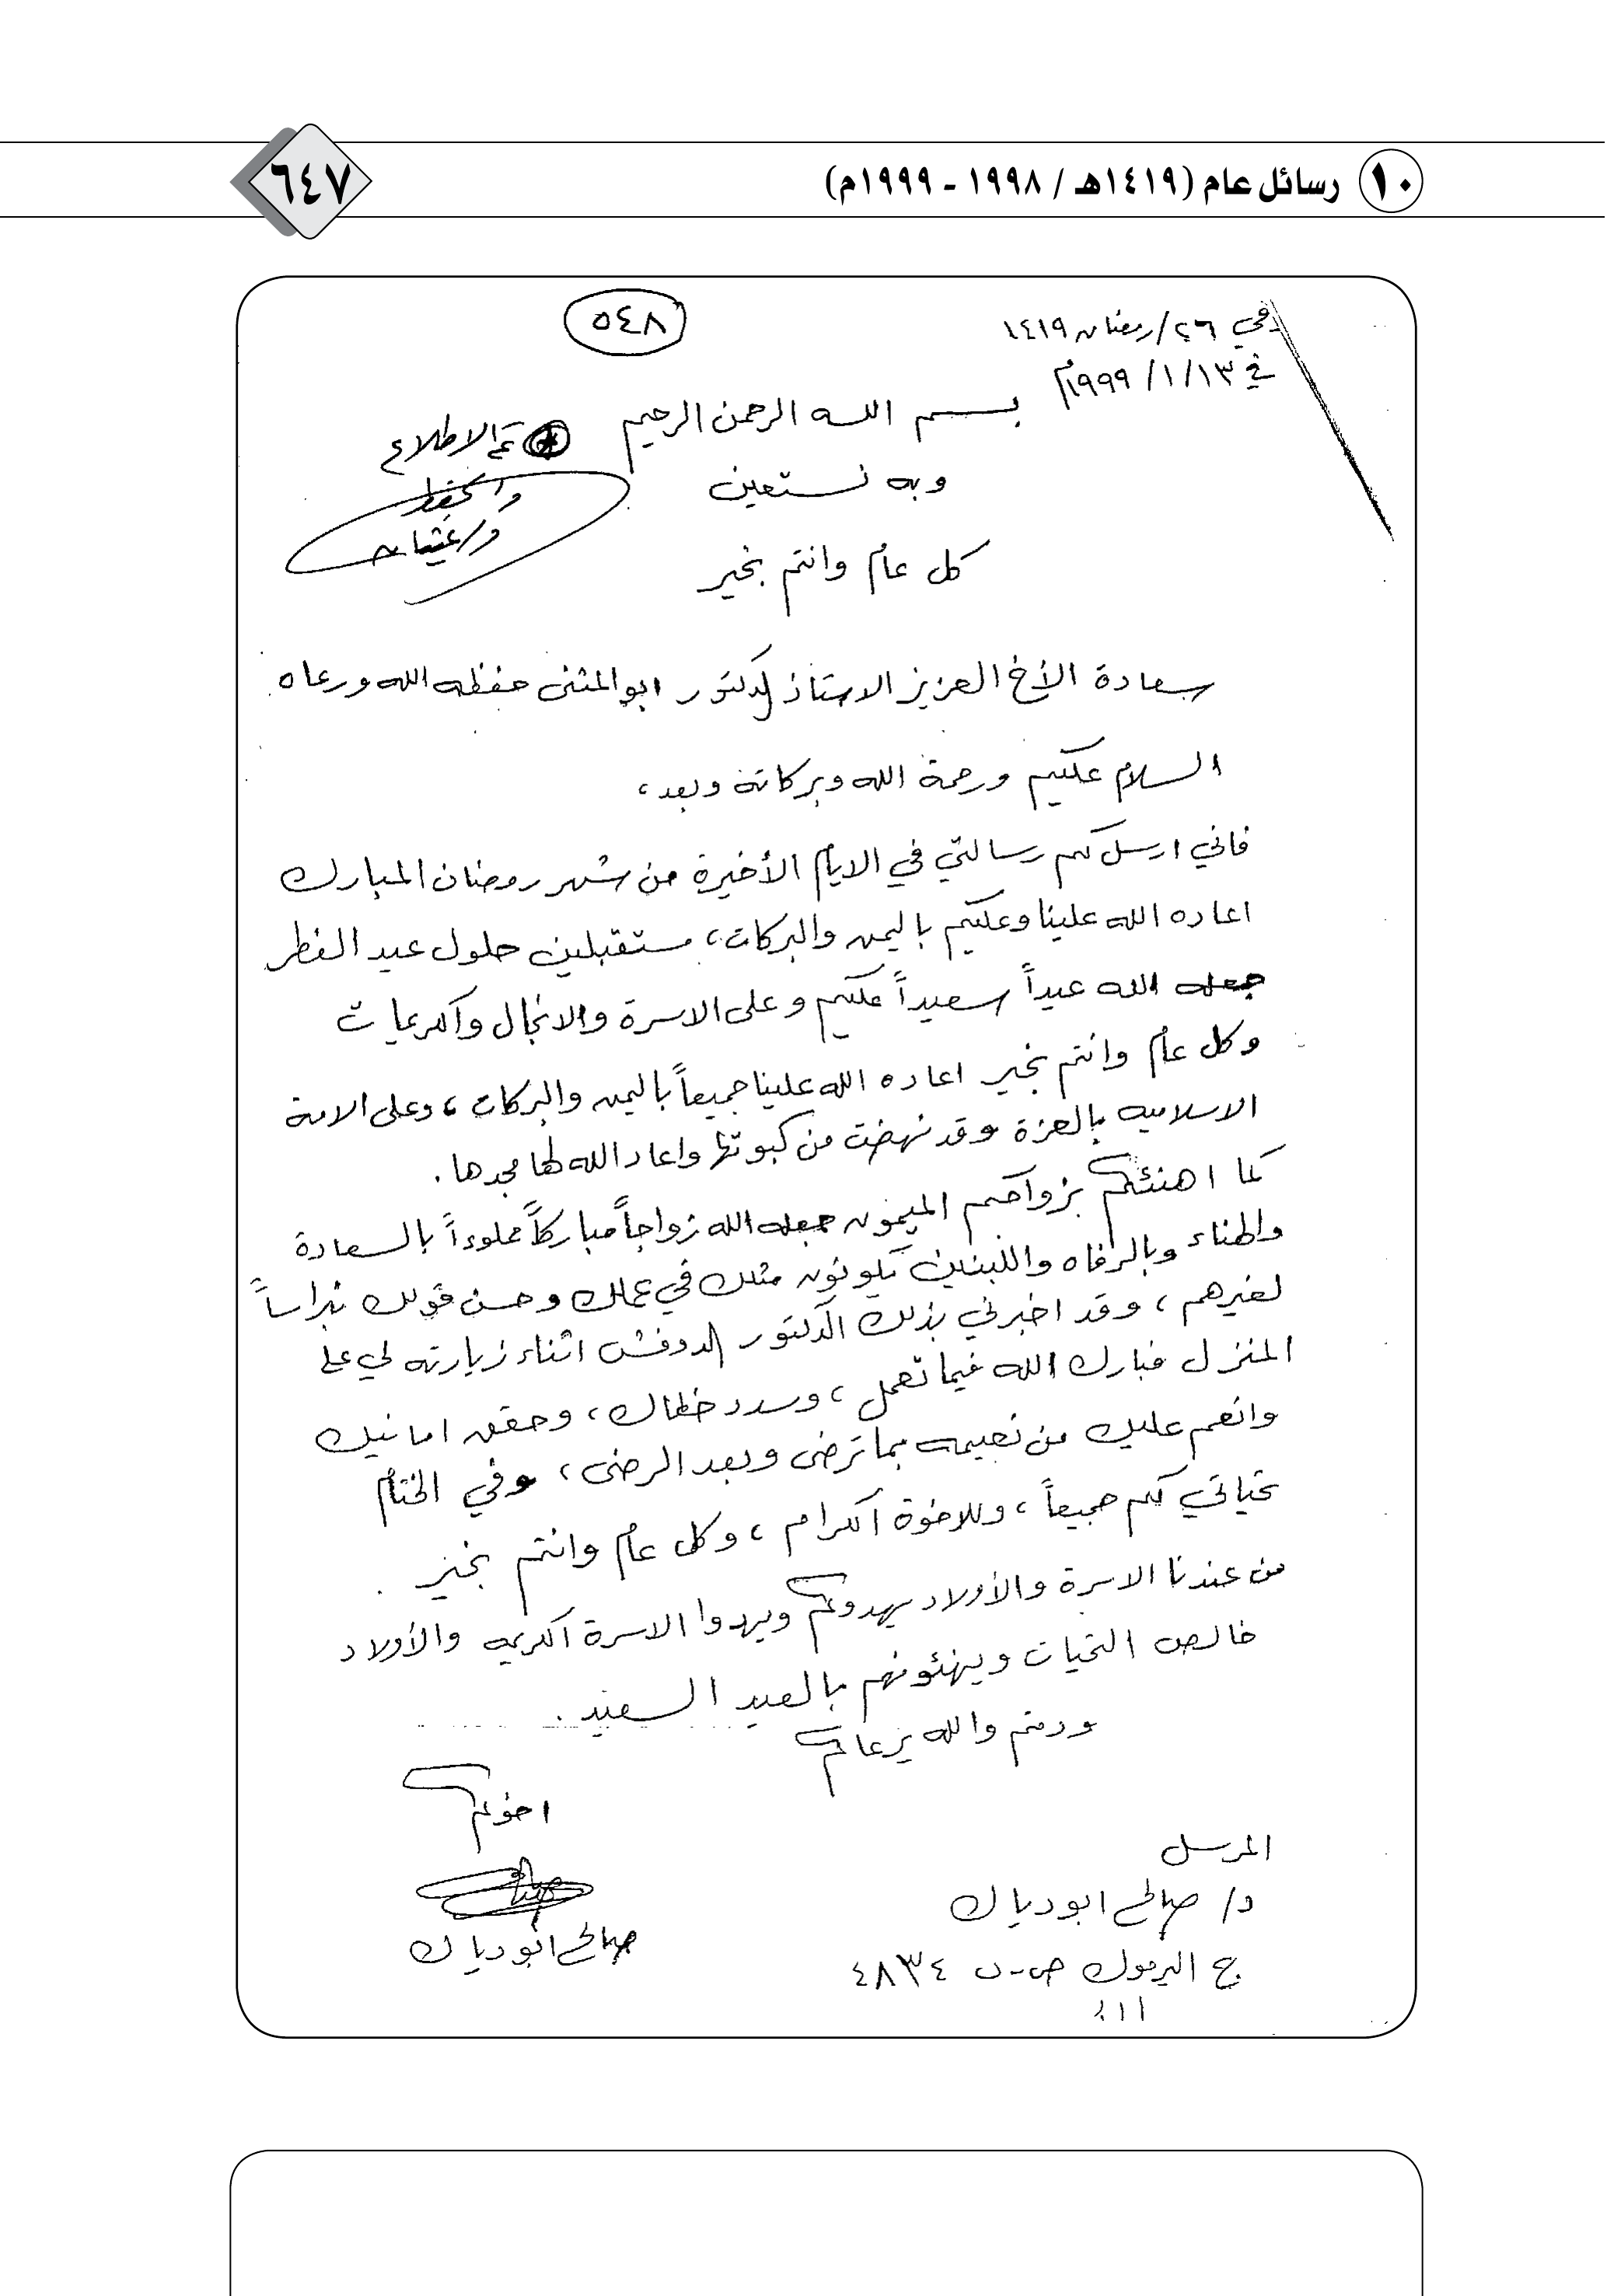 ١٠ رسائل عام (١٤١٩هـ / ١٩٩٨ - ١٩٩٩م)
٦٤٧
٥٤٨
في ٢٦/رمضان ١٤١٩
في ١٣/١/١٩٩٩م
بسم الله الرحمن الرحيم
تم الاطلاع
والحفظ
وبه نستعين
كل عام وانتم بخير
سعادة الأخ العزيز الاستاذ الدكتور ابو المثنى حفظه الله ورعاه
السلام عليكم ورحمة الله وبركاته وبعد،
فاني ارسل لكم رسالتي في الايام الأخيرة من شهر رمضان المبارك
اعاده الله علينا وعليكم باليمن والبركات، مستقبلين حلول عيد الفطر
جعله الله عيداً سعيداً عليكم وعلى الاسرة والانجال والكريمات
وكل عام وانتم بخير اعاده الله علينا جميعاً باليمن والبركات، وعلى الامة
الاسلاميه بالعزة وقد نهضت من كبوتها واعاد الله لها مجدها.
كما اهنئكم بزواجكم الميمون جعله الله زواجاً مباركاً مملوءاً بالسعادة
والهناء وبالرفاه والبنين يكونون مثلك في عملك وحسن قولك نبراساً
لغيرهم، وقد اخبرني بذلك الدكتور الدوفش اثناء زيارته لي على
المنزل فبارك الله فيما تعمل، وسدد خطاك، وحقق امانيك
وانعم عليك من نعيمه بما ترضى وبعد الرضى، وفي الختام
تحياتي لكم جميعاً، وللاخوة الكرام، وكل عام وانتم بخير.
من عندنا الاسرة والأولاد يهدوكم ويهدوا الاسرة الكريمه والأولاد
خالص التحيات ويهنئونهم بالعيد السعيد.
ودمتم والله يرعاكم
اخوكم
صالح ابو دياك
المرسل
د/ صالح ابو دياك
ج اليرموك ص.ب ٤٨٣٤